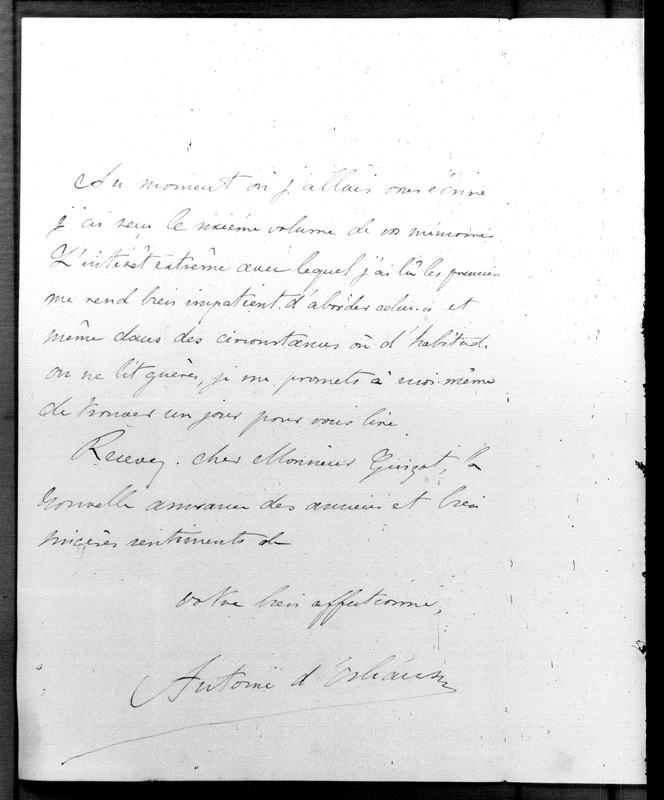 Au moment où j'allais vous écrire
j'ai reçu le sixième volume de vos mémoires
L'intérêt extrême avec lequel j'ai lû les premiers
me rend bien impatient d'aborder celui-ci et
même dans des circonstances où d'habitude
on ne lit guères, je me promets à moi-même
de trouver un jour pour vous lire
Recevez, cher Monsieur Guizot, la
nouvelle assurance des anciens et bien
sincères sentiments de
votre bien affectionné,
Antoine d'Orléans